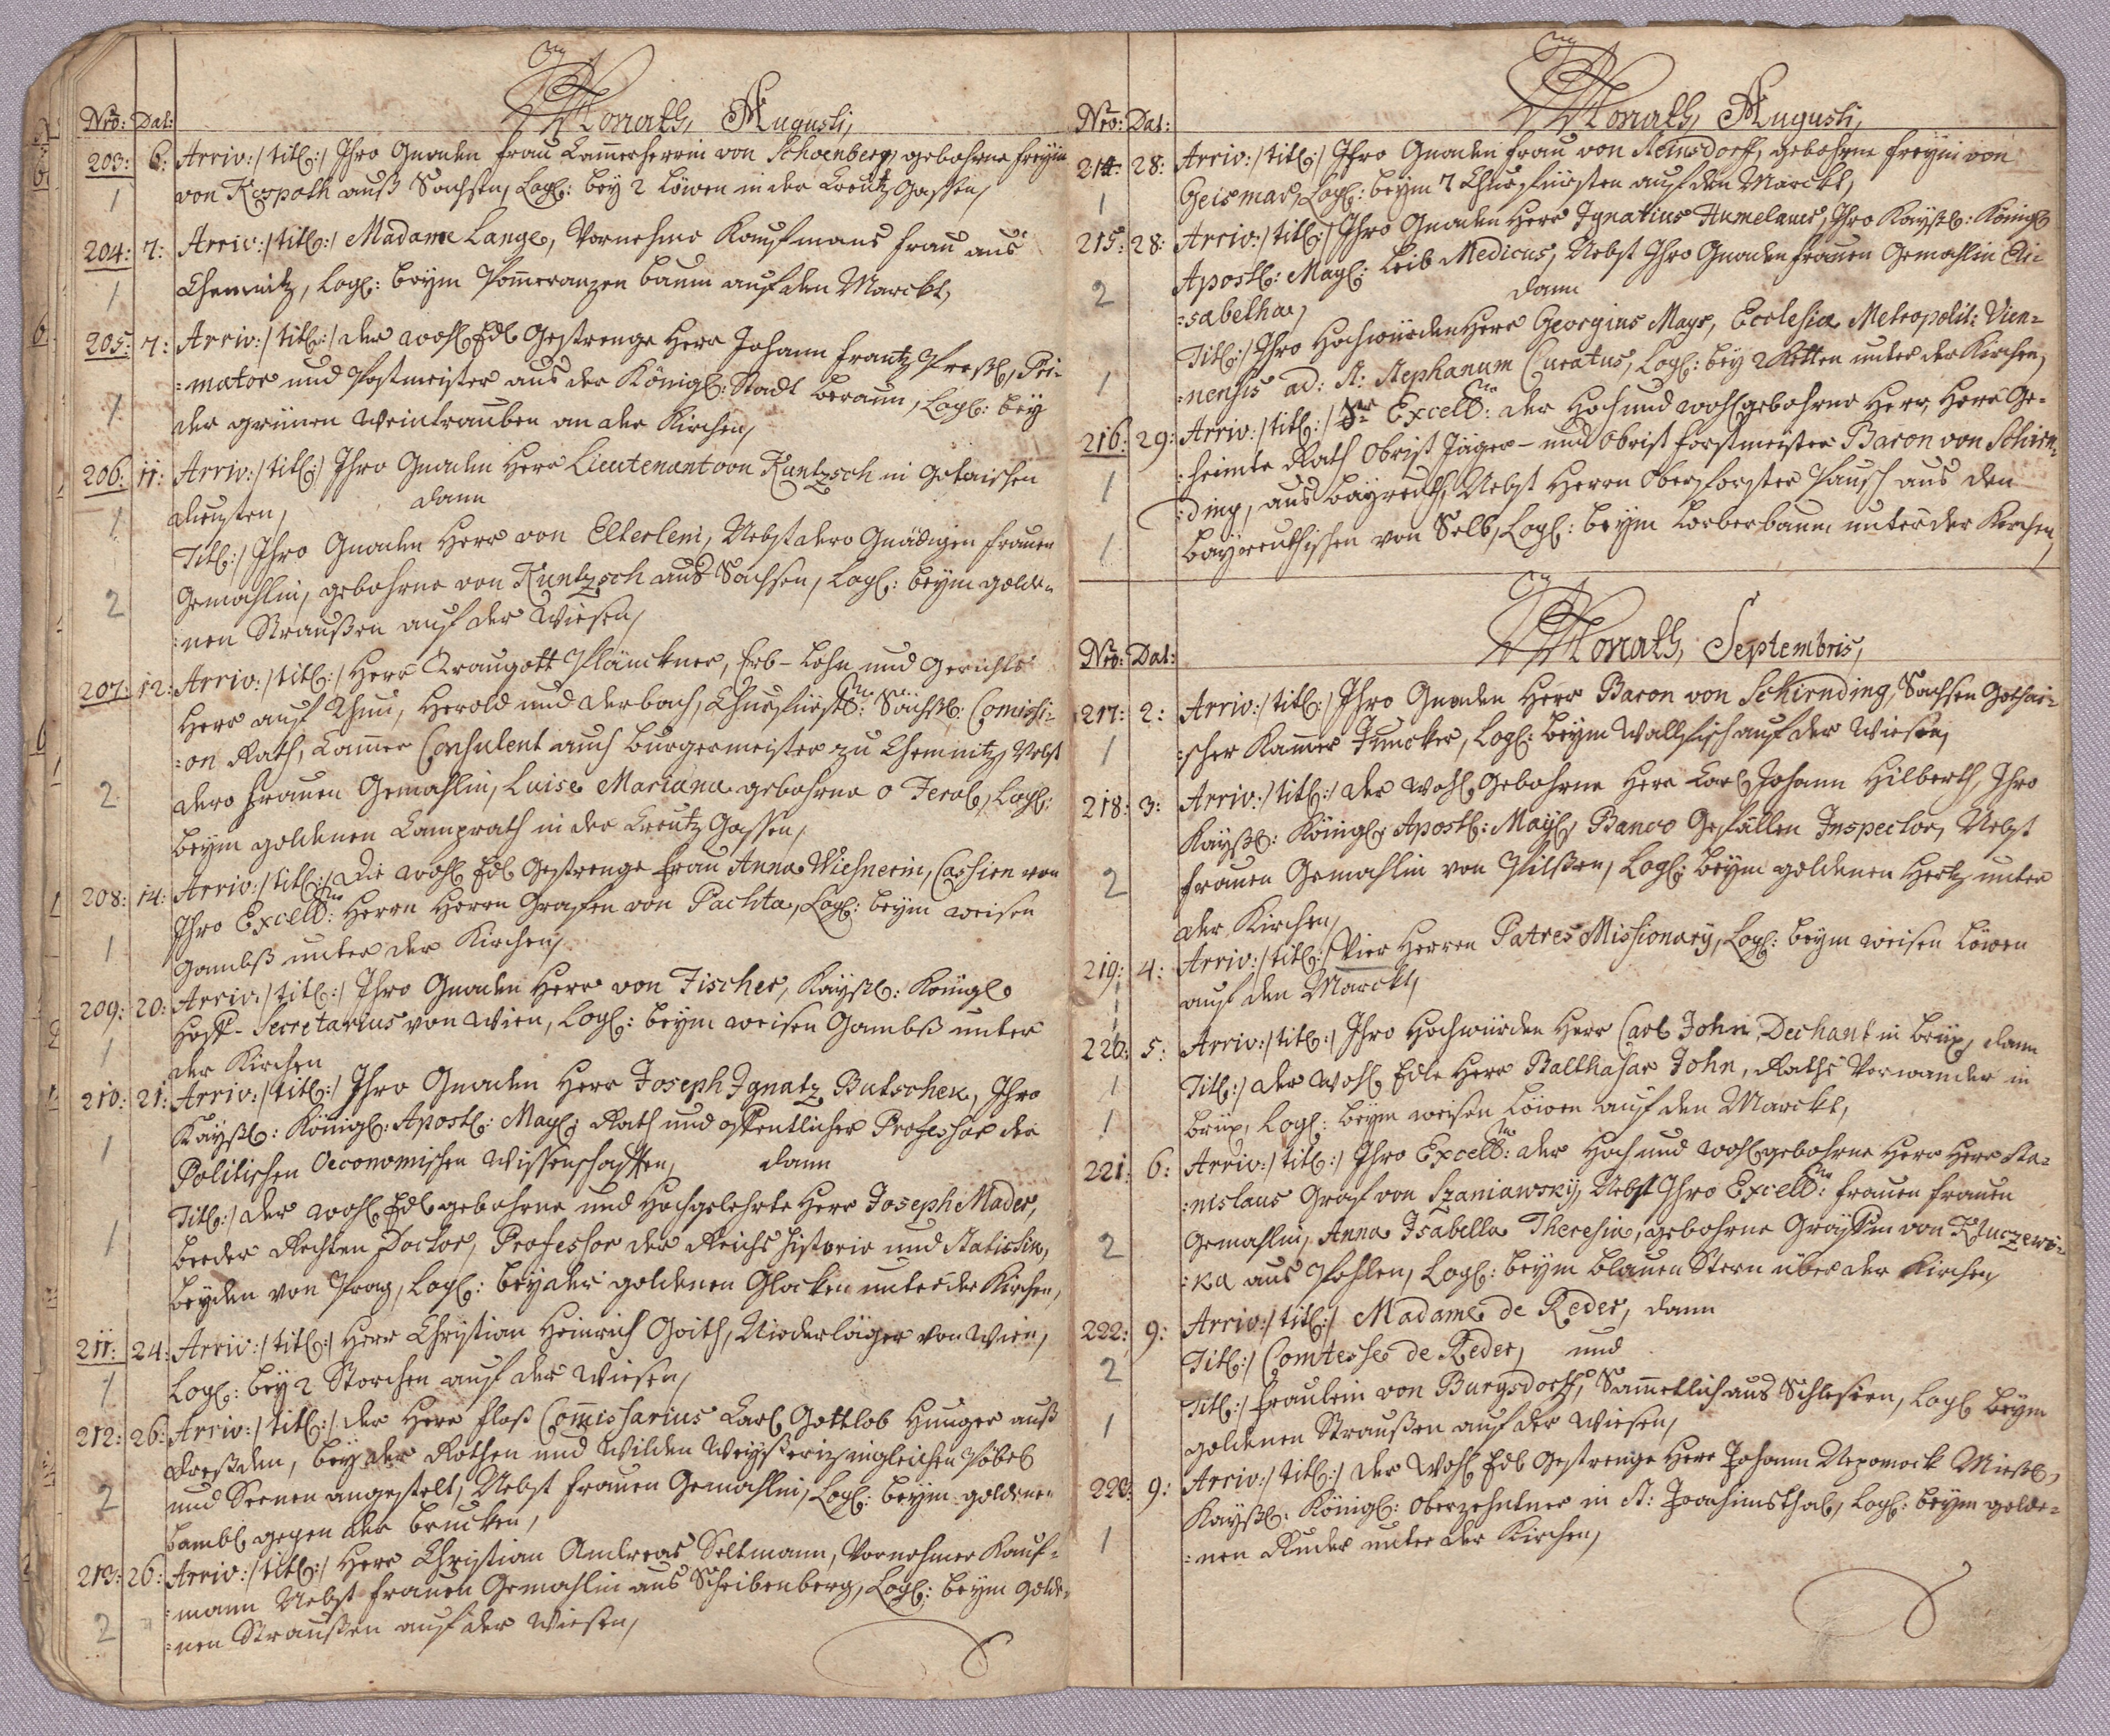 Monath Augusti,
Nro: Dat:
203: 6: Arriv:/ titl:/ Ihro Gnaden Frau Cammerherrin von Schoenberg, gebohrne Freyin
1 von Kospoth auß Sachsen, Log: bey 2 Löwen in der Creutz Gassen,
204: 7: Arriv:/ titl:/ Madame Lange, Vornehme Kaufmans Frau aus
1 Chemnitz, Log: beym Pomeranzen baum auf den Marckt,
205: 7: Arriv:/ titl:/ der Wohl Edl Gestrenge Herr Johann Frantz Preßl, Pri-
:mator und Postmeister aus der Königl: Stadt Beraun, Log: bey
1 der grünen Weintrauben an der Kirchen,
206: 11: Arriv:/ titl:/ Ihro Gnaden Herr Lieutenant von Kuntzsch in Gotaischen
1 diensten, dann
Titl:/ Ihro Gnaden Herr von Elterlein, Nebst dero Gnädigen Frauen
2 Gemahlin, gebohrne von Kuntzsch aus Sachsen, Log: beym golde-
:nen Straußen auf der Wiesen,
207: 12: Arriv:/ titl:/ Herr Traugott Plänckner, Erb- Lehn und Gerichts
Herr auf Thum, Herold und Aerbach, Churfürstl: Sächßl: Comissi-
:on Rath, Cammer Consulent auch Burgermeister zu Chemnitz, Nebst
2 dero Frauen Gemahlin, Luise Mariana gebohrne o Feral, Log:
beym goldenen Camprath in der Creutz Gassen,
208: 14: Arriv:/ titl:/ Die Wohl Edl Gestrenge Frau Anna Wiesnerin, Cassien von
Ihro Excell: Herrn Herrn Grafen von Pachta, Log: beym weisen
1 Gambß unter der Kirchen,
209: 20: Arriv:/ titl:/ Ihro Gnaden Herr von Fischer, Kayßl: Königl
Hoff- Secretarius von Wien, Log: beym weisen Gambß unter
1 der Kirchen
210: 21: Arriv:/ titl:/ Ihro Gnaden Herr Joseph Ignatz Butschek, Ihro
Kayßl: Königl: Apostl: May: Rath und offentlicher Professor der
1 Politischen Oeconomischen Wissenschafften, dann
Titl:/ der Wohl Edlgebohrne und Hochgelehrte Herr Joseph Mader,
1 beeder Rechten Doctor, Professor der Reichs Historie und Statistic,
beyden von Prag, Log: bey der goldenen Glocken unter der Kirchen,
211: 24: Arriv:/ titl:/ Herr Christian Heinrich Goith, Niederläger von Wien,
1 Log: bey 2 Storchen auf der Wiesen,
212: 26: Arriv:/ titl:/ der Herr Floß Commissarius Carl Gottlob Hunger auß
Dreßden, bey der Rothen und Wilden Weyßeriz ingleichen Pöbel
2 und Seenen angestelt, Nebst Frauen Gemahlin, Log: beym goldenen
Lambl gegen der Brucken,
213: 26: Arriv:/ titl:/ Herr Christian Andreas Seltmann, Vornehmer Kauf-
:mann Nebst Frauen Gemahlin aus Scheibenberg, Log: beym golde-
2 :nen Straußen auf der Wiesen,
Monath Augusti,
Nro: Dat:
214: 28: Arriv:/ titl:/ Ihro Gnaden Frau von Steinsdorff, gebohrne Freyin von
1 Geismar, Log: beym 7 Churfürsten auf den Marckt,
215: 28: Arriv:/ titl:/ Ihro Gnaden Herr Ignatius Humelauer, Ihro Kayßl: Königl
2 Apostl: May: Leib Medicus, Nebst Ihro Gnaden Frauen Gemahlin Eli-
:sabetha, dann
Titl:/ Ihro Hochwürden Herr Georgius Mayr, Ecclesiæ Metropolit: Vien-
1 :nensis ad: St: Stephanum Curatus, Log: bey 2 Ketten unter der Kirchen,
216: 29: Arriv:/ titl:/ Sr Excell: der Hoch und Wohlgebohrne Herr, Herr Ge-
:heimte Rath Obrist Jäger- und Obrist Forstmeister Baron von Schirn-
1 :ding, aus Bayreuth, Nebst Herrn Oberforster Pausch aus den
1 Bayreuthischen von Selb, Log: beym Lorberbaum unter der Kirchen,
Monath Septembris,
Nro: Dat:
217: 2: Arriv:/ titl:/ Ihro Gnaden Herr Baron von Schirnding, Sachsen Gothai-
1 :scher Kammer Juncker, Log: beym Wallfisch auf der Wiesen,
218: 3: Arriv:/ titl:/ der Wohl Gebohrne Herr Carl Johann Hilberth, Ihro
Kayßl: Königl: Apostl: May: Banco Gefällen Inspector, Nebst
2 Frauen Gemahlin von Pilßen, Log: beym goldenen Hertz unter
der Kirchen,
219: 4: Arriv:/ titl:/ Vier Herren Patres Missionarÿ, Log: beym weisen Löwen
auf den Marckt,
220: 5: Arriv:/ titl:/ Ihro Hochwürden Herr Carl John, Dechant in Brüx, dann
1 Titl:/ der Wohl Edle Herr Balthasar John, Raths Verwander in
1 Brüx, Log: beym weisen Löwen auf den Marckt,
221: 6: Arriv:/ titl:/ Ihro Excell: der Hoch und Wohlgebohrne Herr Herr Sta-
:nislaus Graf von Szaniawsky, Nebst Ihro Excell: Frauen Frauen
2 Gemahlin, Anna Isabella Theresia, gebohrne Gräffin von Kluczews-
:ka aus Pohlen, Log: beym blauen Stern über der Kirchen,
222: 9: Arriv:/ titl:/ Madame de Reder, dann
2 Titl:/ Comtesse de Reder, und
Titl:/ Fraulein von Burgsdorff, Sammetlich aus Schlesien, Log: beym
1 goldenen Straußen auf der Wiesen,
223: 9: Arriv:/ titl:/ der Wohl Edl Gestrenge Herr Johann Nepomock Mießl,
Kayßl: Königl: Oberzehntner in St: Joachimsthal, Log: beym golde-
1 :nen Ruder unter der Kirchen,